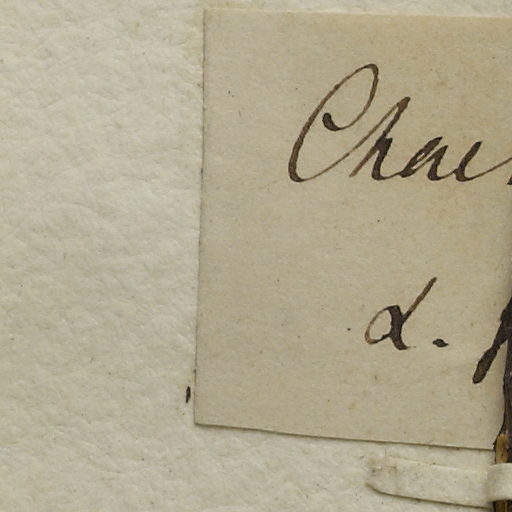 Chae
α.